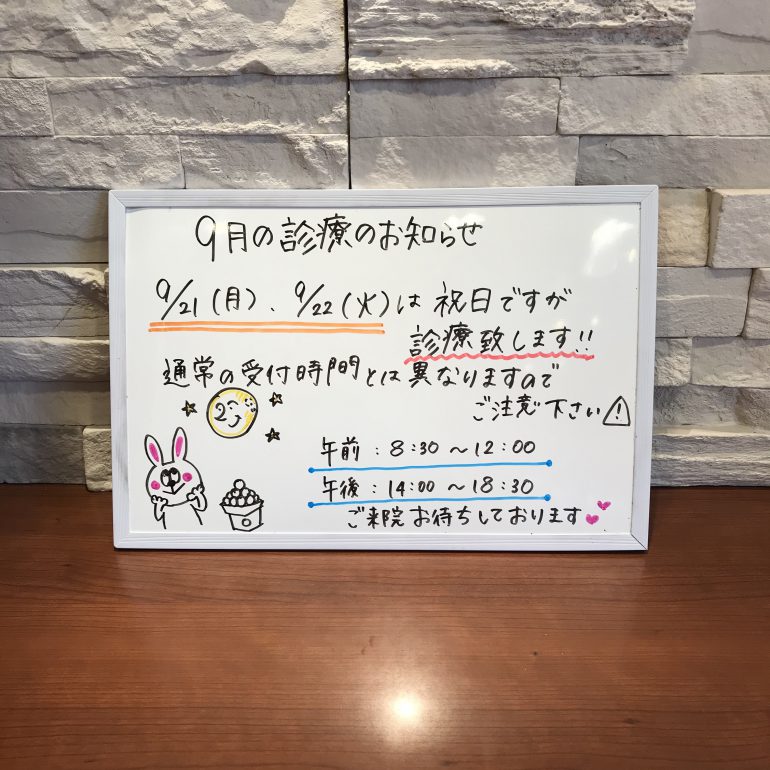 9月の診療のお知らせ
9/21(月)、9/22(火)は祝日ですが
診療致します!!
通常の受付時間とは異なりますので
ご注意下さい⚠
午前:8:30～12:00
午後:14:00～18:30
ご来院お待ちしております